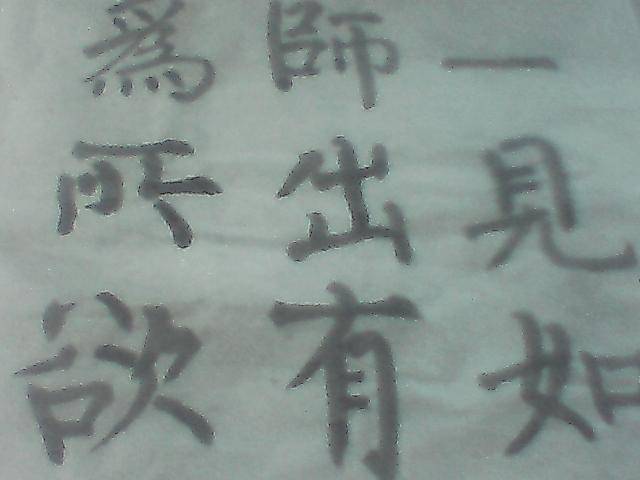 一見如
師出有
為所欲